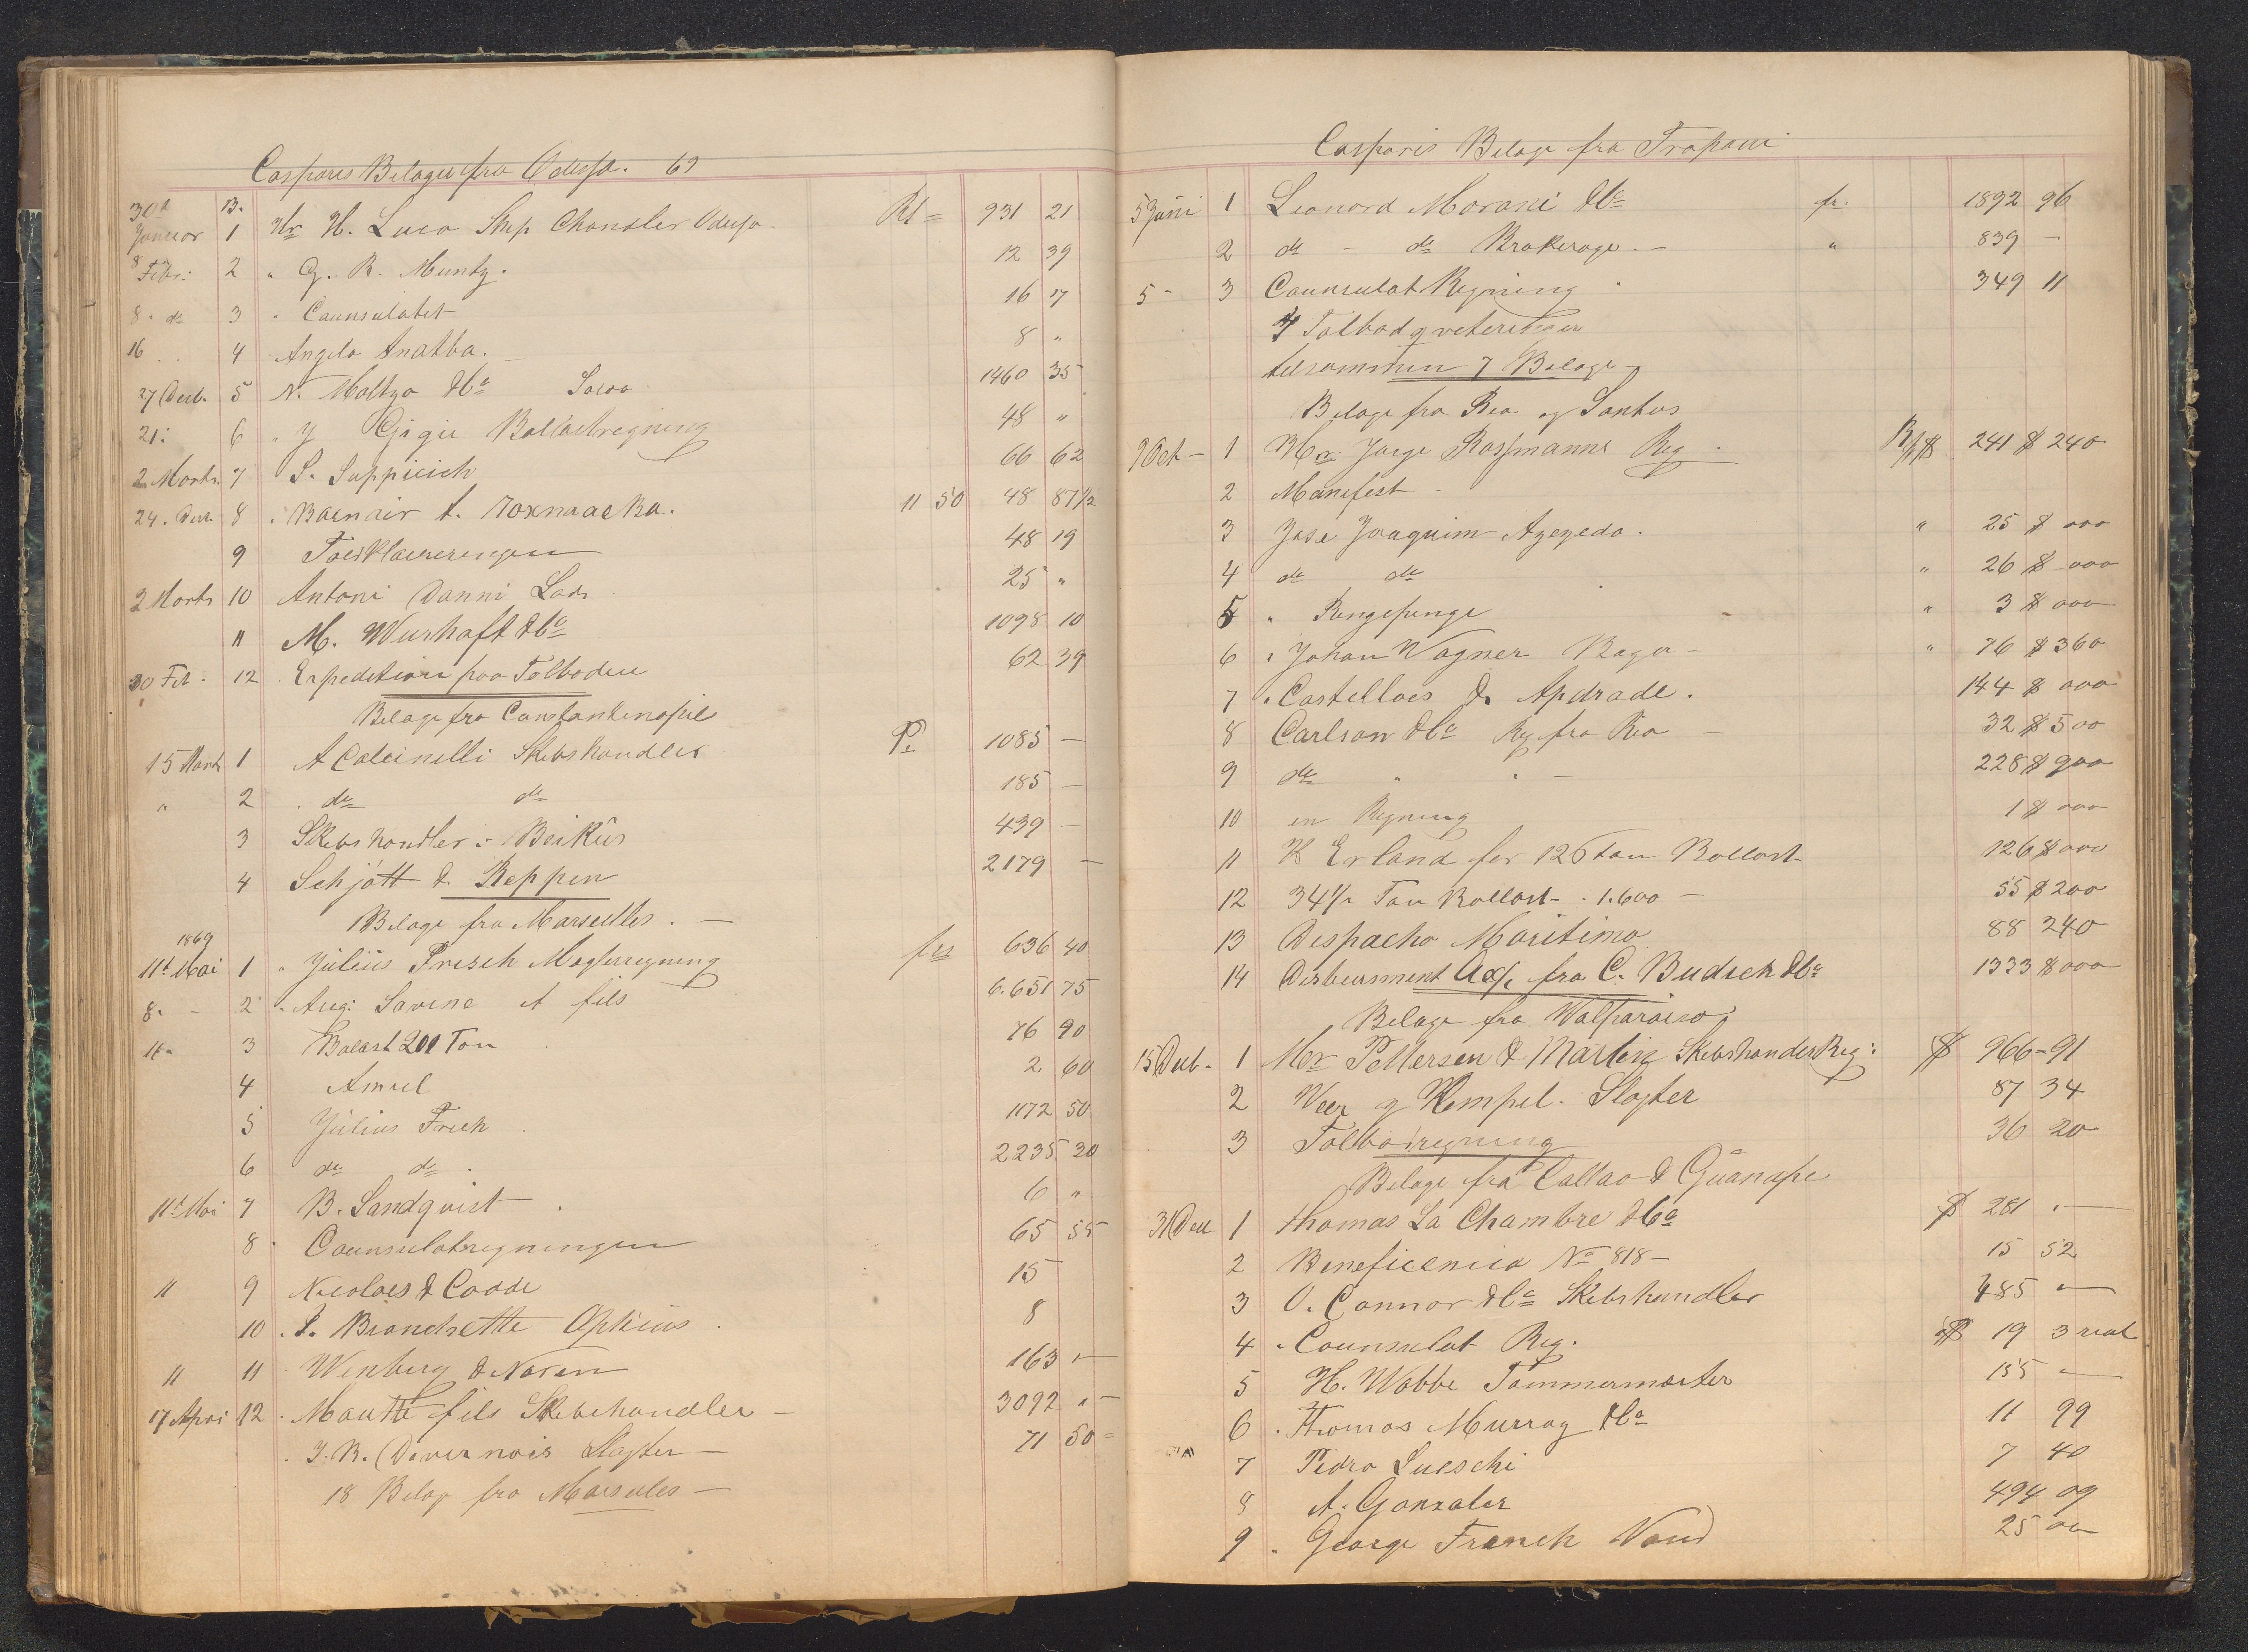 Casparis Belager fra Odessa. 69
30t Januar 1 Hr H. Luco Skip Chandler Odessa. Rl = 931 21
8 Febr: 2 " G. R. Muntz. 12 39
8 " do 3 " Counsulatet 16 17
16 4 Angelo Anatba. 8 "
27 Decb. 5 N. Maltzo & Co 1460 35
21: 6 " Y Gigie Ballastregning 48 "
2 Marts 7 S. Suppicich 66 62
24. Decb. 8 11 50 48 87 1/2
9 48 19
2 Marts 10 Antoni Danni 25 "
11 M. Wurhaft & Co 1098 10
20 Feb. 12 Expeditioen paa Tolboden 62 39
Belage fra Constantinopel
15 Marts 1 A Calcinelli Skibshandler P. 1085 —
" 2 do do 185 —
3 Skibshandler Beikûs 439 —
4 Schjött & Reppen 2179 —
Belage fra Marseilles. —
1869
11t Mai 1 " Julius Frisch Maglerregning fcs 636 40
8. - 2 " Aug: Savine et fils 6.651 75
11 " 3 Balast 201 Ton 76 90
4 Amiel 2 60
5 Julius Frich 1172 50
6 do do 2235 20
11t Mai 7 B. Sandqvist 6 "
8 Counsulatregningen 65 55
11 9 Nicolaes & Codde 15
10 S. Bianchette Opticus 8
11 11 Winberg & Noren 163 "—
17 April 12 Mautte fils Skibshandler — 3092 "—
J. B. Divernois Slagter — 71 50
18 Belag fra Marseiles —
Casparis Belage fra Trapani
5 Juni 1 Leonard Morani & Co fr. 1892 96
2 do — do Brakerage. — " 839 —
5 - 3 Counsulat Regning 349 11
4 Tolbod qveteringer
tilsammen 7 Belage
Belage fra Rio og Santos
9 Oct — 1 Hr Jorge Rossmanns Reg 241 $ 240
2 Manifest
3 Jose Joaquim Azevedo. " 25 $ 000
4 do do " 26 $ 000
5 " Ringepenge " 3 $ 000
6 " Johan Wagner Bager — " 76 $ 360
7 " Castelloes & Andrade. 144 $ 000
8 Carlson & Co Reg fra Rio — 32 $ 500
9 do " " — 228 $ 900
10 en Regning 1 $ 000
11 K Erland for 126 ton Ballast 126 $ 000
12 34 1/2 Ton Ballast - 1.600 — 55 $ 200
13 Despacho Maritimo 88 240
14 Disbursment Acc/t fra C. Budich & Co 1333 $ 000
Belage fra Walparaiso
15 Decb. 1 Mer Pettersen & Martin Skibshandler Reg: $ 966 - 91
2 Weer og Hempel. Slagter 87 34
3 Tolbodregning 36 20
Belage fra Callao & Guanape
31 Dec 1 Thomas La Chambre & Co $ 281 . —
2 Beneficencia No 818 — 15 52
3 O. Connor & Co Skibshandler 485 —
4 " Counsulat Reg. $ 19 3 real
5 H. Wobbe Tømmermester 155 —
6 " Thomas Murray & Co 11 99
7 Pedro Sueschi 7 40
8 A. Gonzales 494 09
9 " George French Vand 25 00